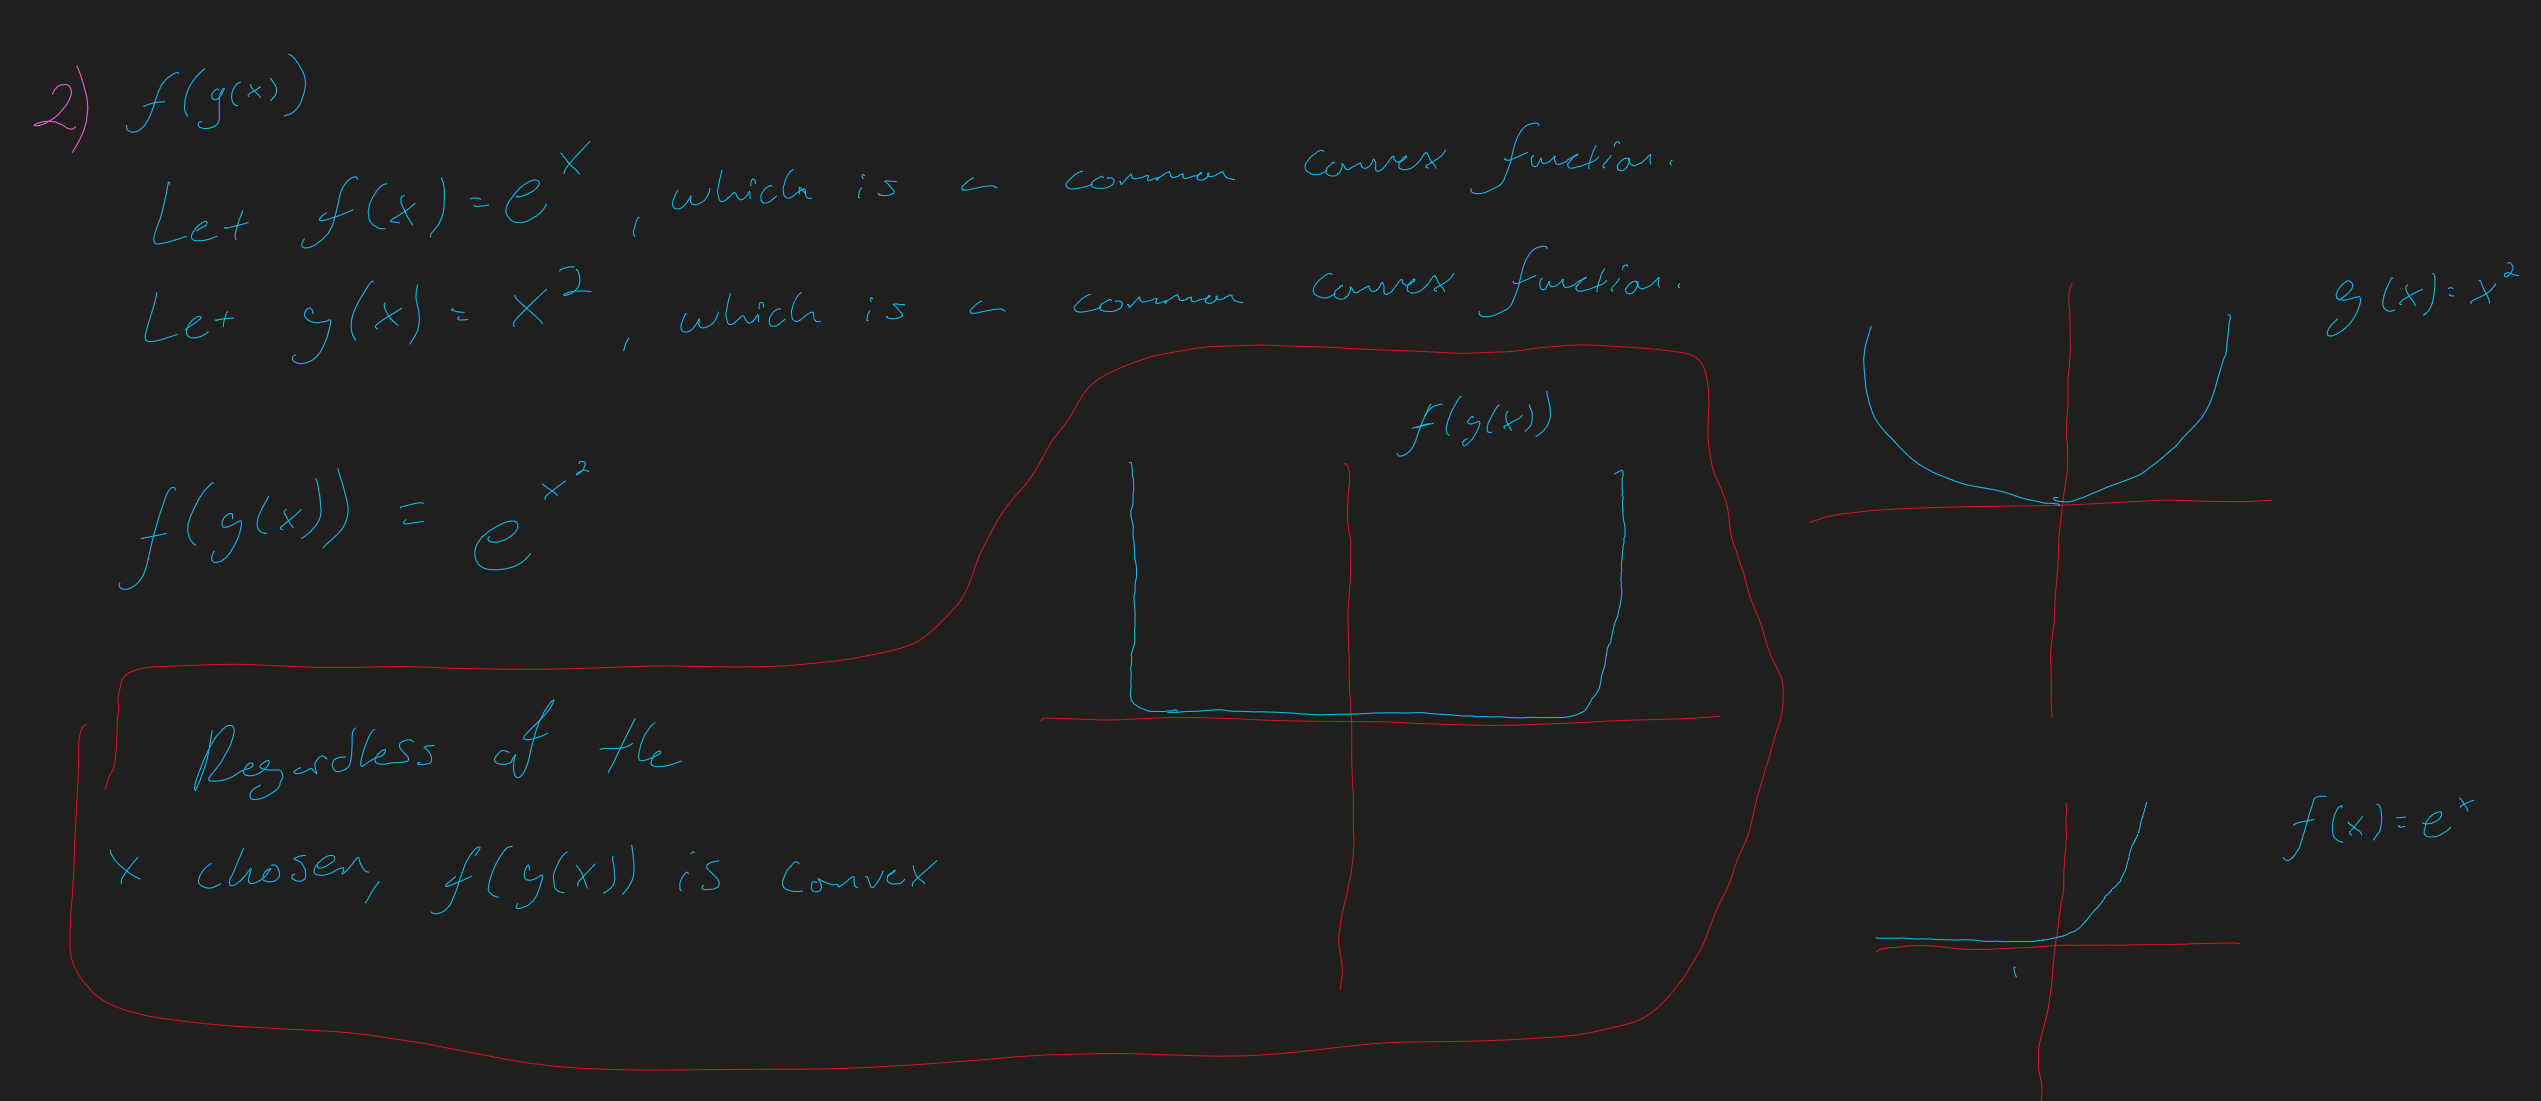 2) f(g(x))
Let f(x) = e^x, which is a common convex function.
Let g(x) = x^2, which is a common convex function.
g(x) = x^2
f(g(x))
f(g(x)) = e^x^2
Regardless of the
x chosen, f(g(x)) is convex
f(x) = e^x